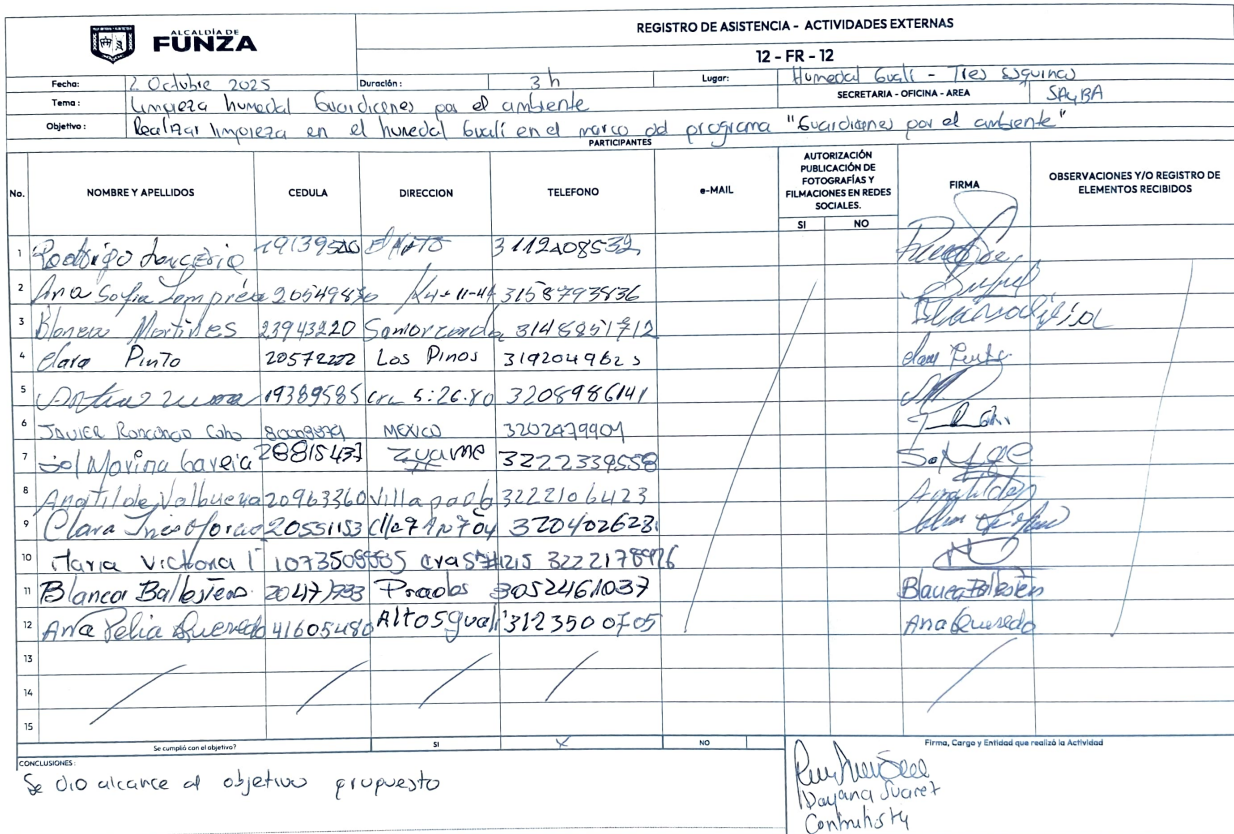 ALCALDÍA DE
FUNZA
REGISTRO DE ASISTENCIA - ACTIVIDADES EXTERNAS
12 - FR - 12
Fecha: 2 Octubre 2025 Duración: 3 h Lugar: Humedal Gualí - Tres Esquinas
Tema: Limpieza humedal Guardianes por el ambiente SECRETARIA - OFICINA - AREA SAyBA
Objetivo: Realizar limpieza en el humedal Gualí en el marco del programa "Guardianes por el ambiente"
PARTICIPANTES
No. NOMBRE Y APELLIDOS CEDULA DIRECCION TELEFONO e-MAIL AUTORIZACIÓN PUBLICACIÓN DE FOTOGRAFÍAS Y FILMACIONES EN REDES SOCIALES. FIRMA OBSERVACIONES Y/O REGISTRO DE ELEMENTOS RECIBIDOS
SI NO
1 Rodrigo 3112408532
2 Ana Sofia 3158793836
3 Martines 23943220 3148851712
4 Clara Pinto 20572222 Los Pinos 3192049623
5 19389585 cra 5:26.80 3208986141
6 JAVIER MEXICO 3202479909
7 Sol Marina Garcia 28815437 3222339558
8 Anatilde Valbuena 20963360 Villa 3222106423 Anatilde
9 Clara 20551153 320402623
10 Maria Victoria 3222178976
11 Blanca Ballesteros Prados 3052461037 Blanca Ballesteros
12 Ana Quevedo 41605480 Altos Gualí 3123500705 Ana Quevedo
13
14
15
Se cumplió con el objetivo? SI X NO Firma, Cargo y Entidad que realizó la Actividad
CONCLUSIONES:
Se dio alcance al objetivo propuesto
Dayana Suarez
Contratista